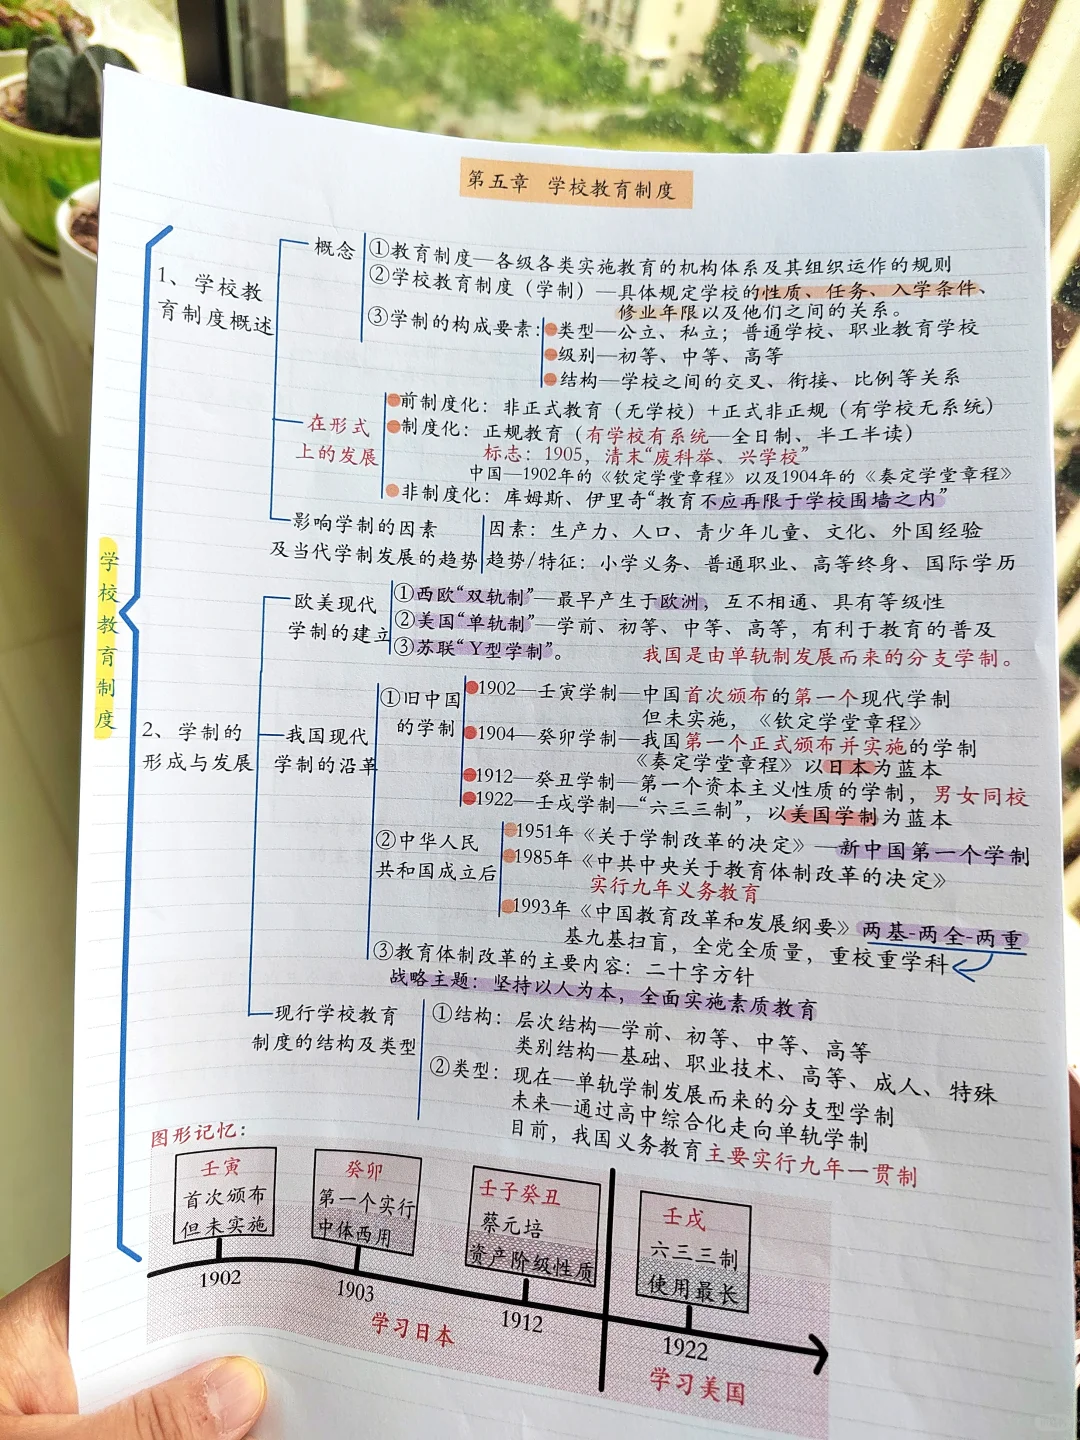 第五章 学校教育制度
学校教育制度
1、学校教
育制度概述
概念
①教育制度—各级各类实施教育的机构体系及其组织运作的规则
②学校教育制度（学制）—具体规定学校的性质、任务、入学条件、
修业年限以及他们之间的关系。
③学制的构成要素:
类型—公立、私立；普通学校、职业教育学校
级别—初等、中等、高等
结构—学校之间的交叉、衔接、比例等关系
在形式
上的发展
前制度化：非正式教育（无学校）+正式非正规（有学校无系统）
制度化：正规教育（有学校有系统—全日制、半工半读）
标志：1905，清末“废科举、兴学校”
中国—1902年的《钦定学堂章程》以及1904年的《奏定学堂章程》
非制度化：库姆斯、伊里奇“教育不应再限于学校围墙之内”
影响学制的因素
及当代学制发展的趋势
因素：生产力、人口、青少年儿童、文化、外国经验
趋势/特征：小学义务、普通职业、高等终身、国际学历
2、学制的
形成与发展
欧美现代
学制的建立
①西欧“双轨制”—最早产生于欧洲，互不相通、具有等级性
②美国“单轨制”—学前、初等、中等、高等，有利于教育的普及
③苏联“Y型学制”。
我国是由单轨制发展而来的分支学制。
我国现代
学制的沿革
①旧中国
的学制
1902—壬寅学制—中国首次颁布的第一个现代学制
但未实施，《钦定学堂章程》
1904—癸卯学制—我国第一个正式颁布并实施的学制
《奏定学堂章程》以日本为蓝本
1912—癸丑学制—第一个资本主义性质的学制，男女同校
1922—壬戌学制—“六三三制”，以美国学制为蓝本
②中华人民
共和国成立后
1951年《关于学制改革的决定》—新中国第一个学制
1985年《中共中央关于教育体制改革的决定》
实行九年义务教育
1993年《中国教育改革和发展纲要》两基-两全-两重
基九基扫盲，全党全质量，重校重学科
③教育体制改革的主要内容：二十字方针
战略主题：坚持以人为本，全面实施素质教育
现行学校教育
制度的结构及类型
①结构：层次结构—学前、初等、中等、高等
类别结构—基础、职业技术、高等、成人、特殊
②类型：现在—单轨学制发展而来的分支型学制
未来—通过高中综合化走向单轨学制
目前，我国义务教育主要实行九年一贯制
图形记忆：
壬寅
首次颁布
但未实施
1902
癸卯
第一个实行
中体西用
1903
壬子癸丑
蔡元培
资产阶级性质
1912
壬戌
六三三制
使用最长
1922
学习日本
学习美国